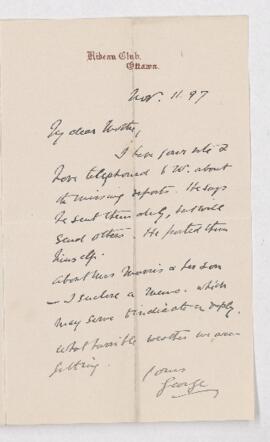 Rideau Club,
Ottawa.
Nov. 11. 97
My dear Mother,
I have your note &
have telephoned to W. about
the missing reports. He says
he sent them duly, but will
send others. He posted them
himself.
About Mrs Morris & her son
— I enclose a memo. which
may serve to indicate a reply.
What horrible weather we are
getting.
Yours
George